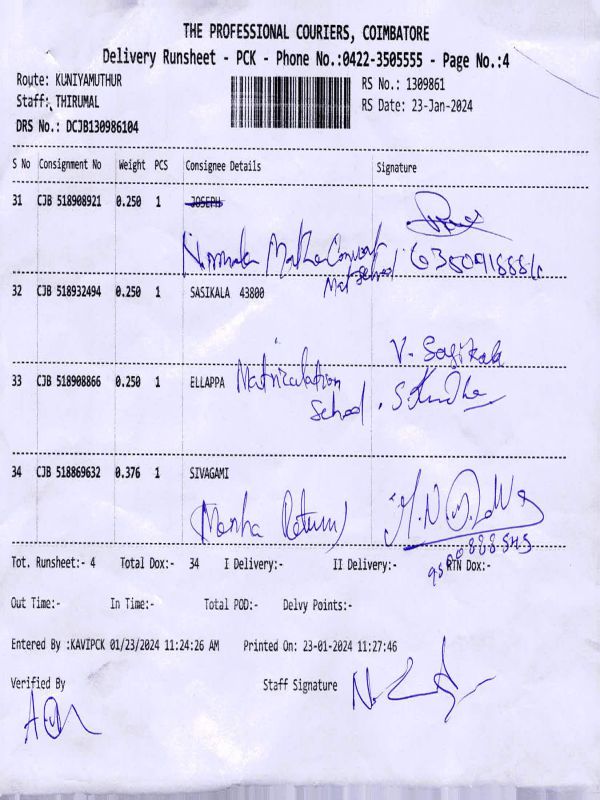 THE PROFESSIONAL COURIERS, COIMBATORE
Delivery Runsheet - PCK - Phone No.:0422-3505555 - Page No.:4
Route: KUNIYAMUTHUR
RS No.: 1309861
Staff: THIRUMAL
RS Date: 23-Jan-2024
DRS No.: DCJB130986104
S No Consignment No Weight PCS Consignee Details Signature
31 CJB 518908921 0.250 1 JOSEPH
Matha Convent
Mat School
32 CJB 518932494 0.250 1 SASIKALA 43800
V. Sasikala
33 CJB 518908866 0.250 1 ELLAPPA Matriculation
School
34 CJB 518869632 0.376 1 SIVAGAMI
Tot. Runsheet:- 4 Total Dox:- 34 I Delivery:- II Delivery:- RTN Dox:-
Out Time:- In Time:- Total POD:- Delvy Points:-
Entered By :KAVIPCK 01/23/2024 11:24:26 AM Printed On: 23-01-2024 11:27:46
Verified By Staff Signature